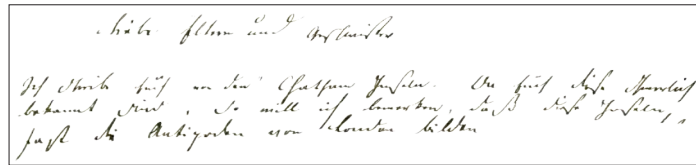 Liebe Eltern und Geschwister
Ich schreibe Euch von den Chatham Inseln. Da Euch diese schwerlich
bekannt sind, so will ich bemerken, daß diese Inseln,
fast die Antipoden von London bilden